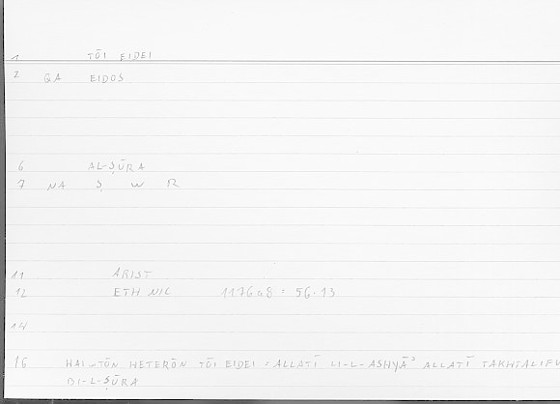 1 TŌI EIDEI
2 GA EIDOS
6 AL-ṢŪRA
7 NA Ṣ W R
11 ARIST
12 ETH NIC 1176a8 = 56.13
14
16 HAI-TŌN HETERŌN TŌI EIDEI, ALLATĪ LI-L-ASHYĀʾ ALLATĪ TAKHTALIFU
BI-L-ṢŪRA